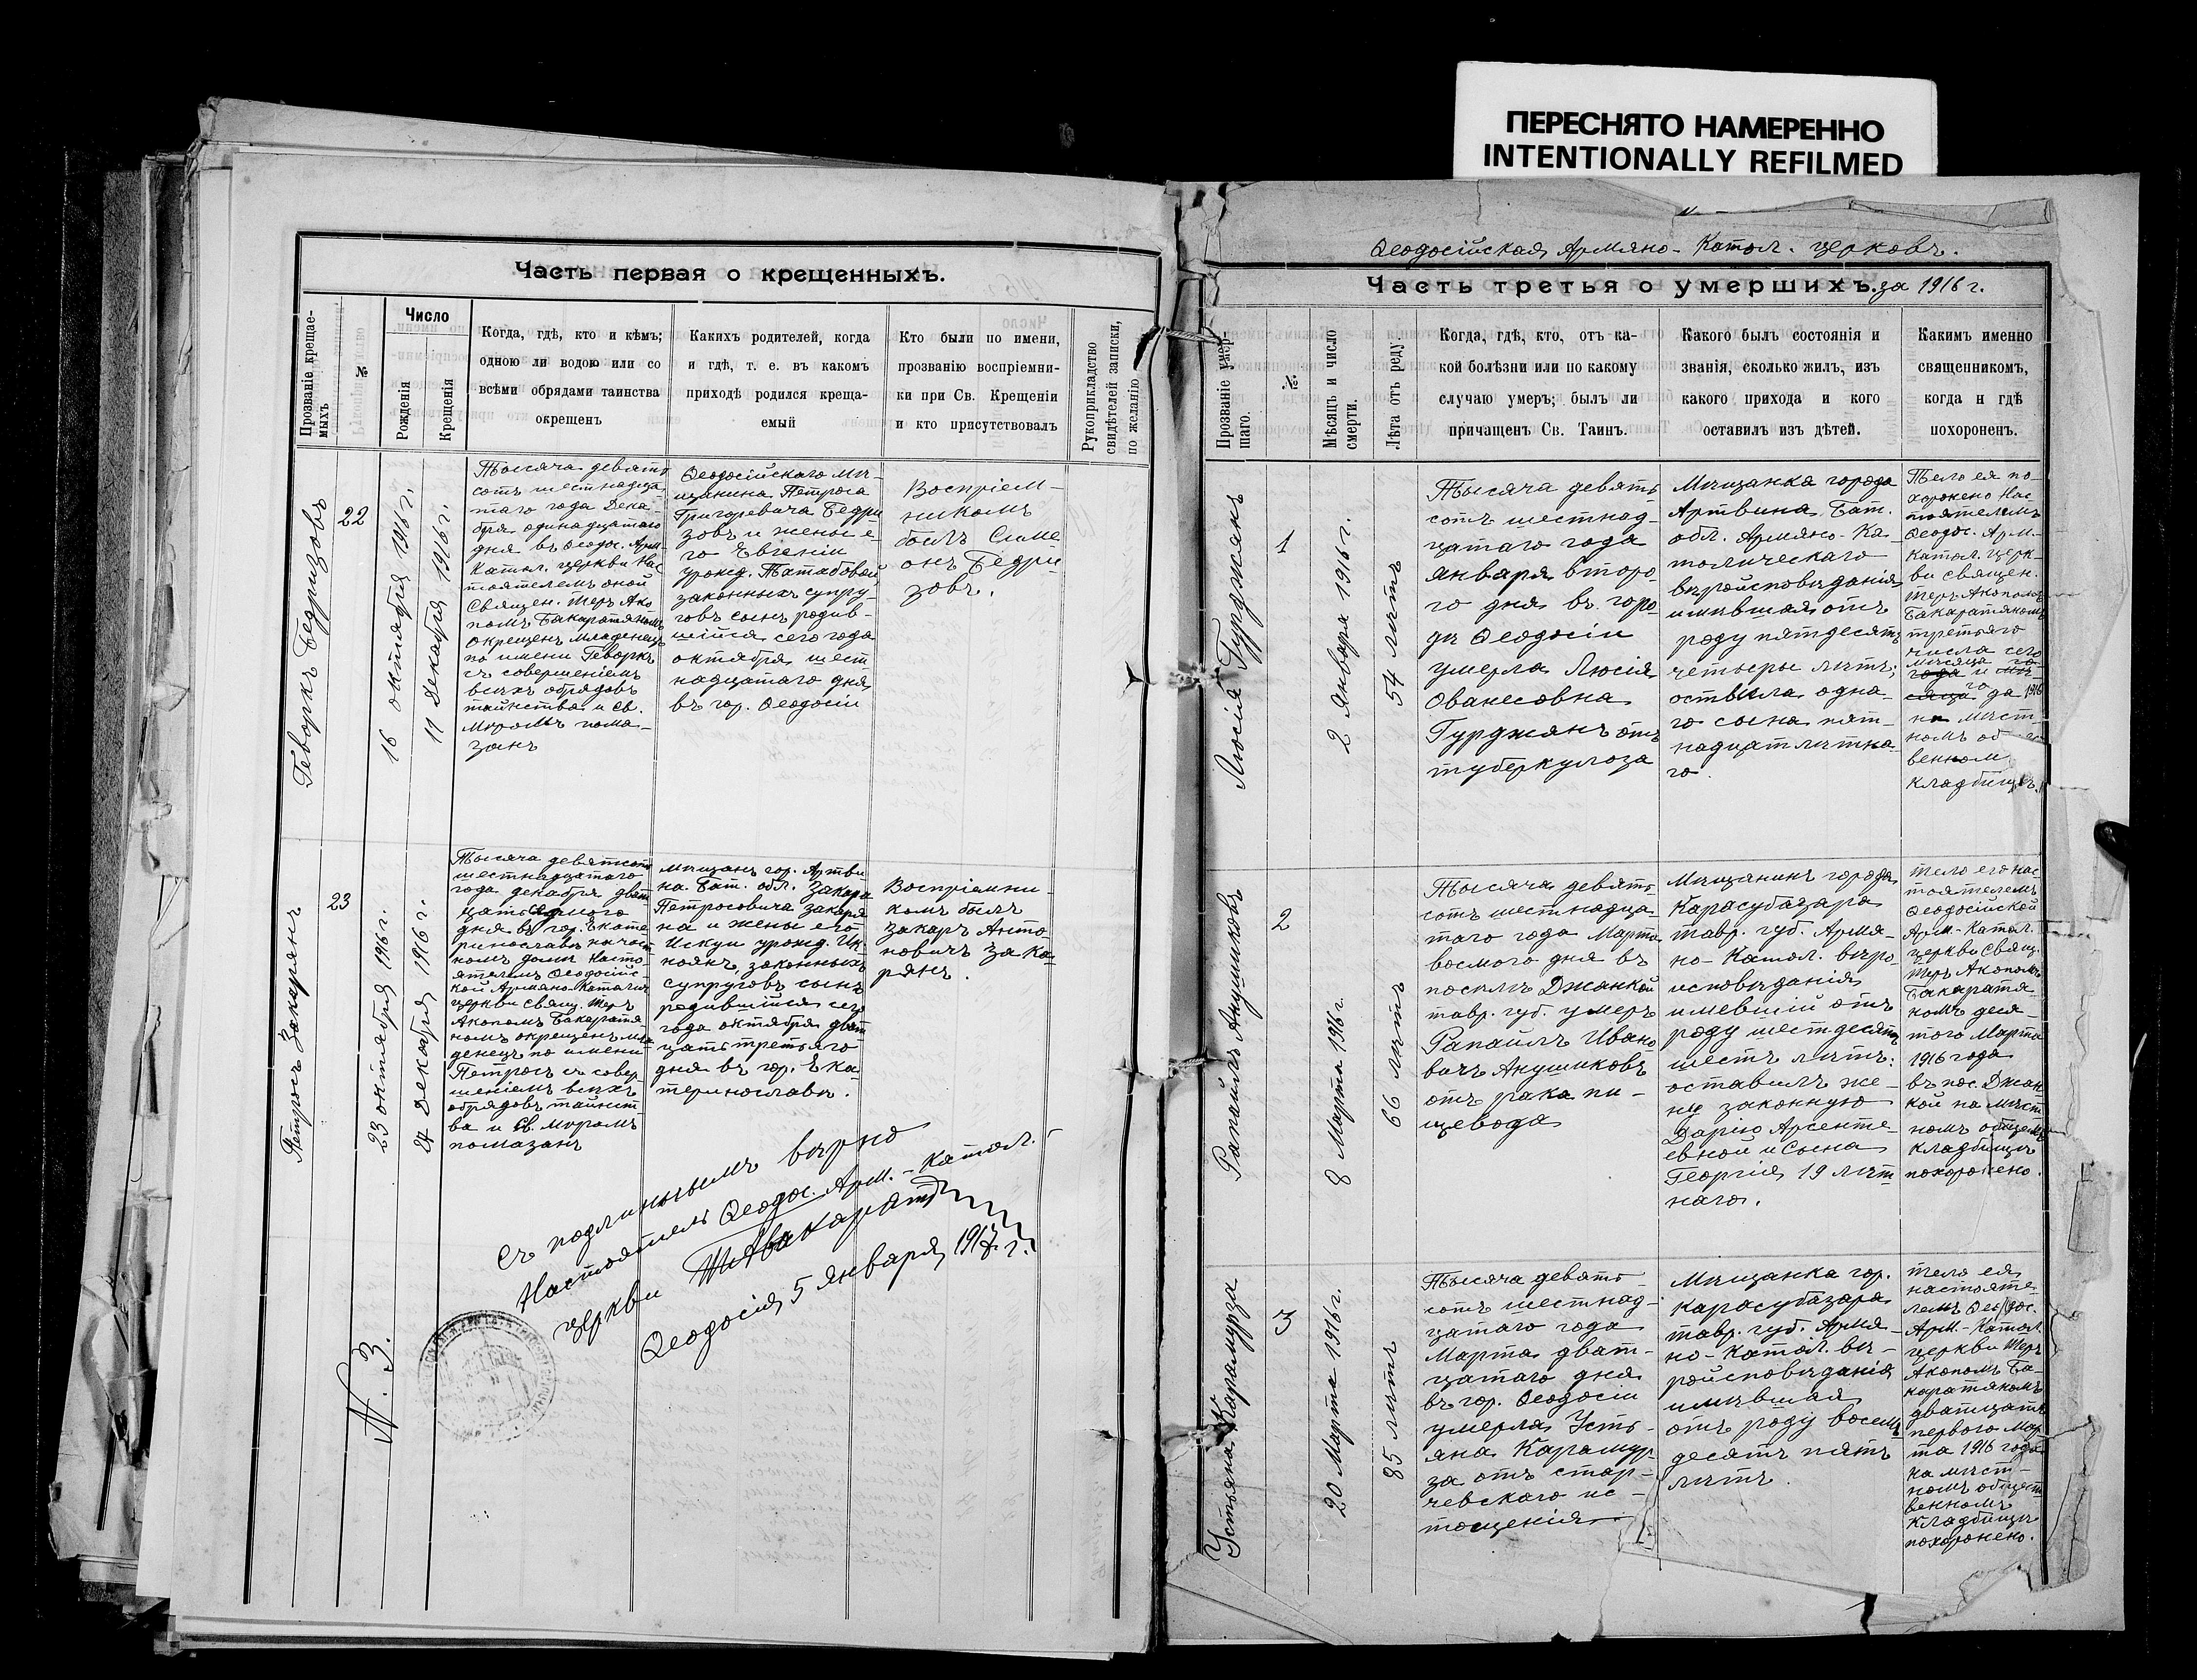 ПЕРЕСНЯТО НАМЕРЕННО
INTENTIONALLY REFILMED
Часть первая о крещенныхъ.
Прозваніе крещае-
мыхъ
№
Число
Рожденія
Крещенія
Когда, гдѣ, кто и кѣмъ;
одною ли водою или со
всѣми обрядами таинства
окрещенъ
Какихъ родителей, когда
и гдѣ, т. е. въ какомъ
приходѣ родился креща-
емый
Кто были по имени,
прозванію воспріемни-
ки при Св. Крещеніи
и кто присутствовалъ
Рукоприкладство
свидѣтелей записки,
по желанію
Геворкъ Бедризовъ
22
16 октября 1916 г.
11 декабря 1916 г.
Тысяча девять
сотъ шестнадца
таго года Дека-
бря одинадцатаго
дня въ Ѳеодос. Арм-
Катол. церкви Нас
тоятелемъ оной
Священ. Теръ Ако
помъ Бакаратяномъ
окрещенъ младенецъ
по имени Геворкъ
съ совершеніемъ
всѣхъ обрядовъ
таинства и Св.
Мѵромъ пома-
занъ
Ѳеодосійскаго мѣ-
щанина Петроса
Григоревича Бедри
зовъ и жены е-
го Евгеніи
урожд. Татабовой
законныхъ супру-
говъ сынъ родив-
шійся сего года
октября шест
надцатаго дня
въ гор. Ѳеодосіи
Воспріем-
никомъ
былъ Симе
онъ Бедри
зовъ.
Петросъ Закарянъ
23
23 октября 1916 г.
21 Декабря 1916 г.
Тысяча девятсотъ
шестнадцатаго
года декабря двад
цать
дня въ гор. Екате
ринославѣ на част
номъ домѣ Насто-
ятелемъ Ѳеодосійс-
кой Армяно-Католич
церкви Свящ. Теръ
Акопомъ Бакаратя
номъ окрещенъ мла
денецъ по имени
Петросъ съ совер-
шеніемъ всѣхъ
обрядовъ таинст-
ва и Св. Мѵромъ
помазанъ
Мѣщанъ гор. Артви
на Бат. обл. Закара
Петросовича Закаря
на и жены его
Искуи урожд. Ик
ноянъ, законныхъ
супруговъ сынъ
родившійся сего
года октября двад
цать третьяго
дня въ гор. Ека-
теринославѣ.
Воспріемни-
комъ былъ
Закаръ Анто-
новичъ Зака-
рянъ.
Съ подлиннымъ вѣрно
Настоятель Ѳеодос. Арм.-Катол.
церкви
Ѳеодосія 5 Января 1917 г.
N. 3.
Ѳеодосійская Армяно-Катол. церковь.
Часть третья о умершихъ. за 1916 г.
Прозваніе умер-
шаго.
№
Мѣсяцъ и число
смерти.
Лѣта отъ роду.
Когда, гдѣ, кто, отъ ка-
кой болѣзни или по какому
случаю умеръ; былъ ли
причащенъ Св. Таин.
Какого былъ состоянія и
званія, сколько жилъ, изъ
какого прихода и кого
оставилъ изъ дѣтей.
Какимъ именно
священникомъ,
когда и гдѣ
похороненъ.
Люсія Гурджянъ
1
2 Января 1916 г.
54 лѣтъ
Тысяча девять
сотъ шестнад-
цатаго года
января второ-
го дня въ горо
дѣ Ѳеодосіи
умерла Люсія
Ованесовна
Гурджянъ отъ
туберкулоза
Мѣщанка города
Артвина Бат.
обл. Армяно-Ка-
толическаго
вѣроисповѣданія
имѣвшая отъ
роду пятдесятъ
четыре лѣтъ;
оставила одна-
го сына пят-
надцатлѣтна
го.
Тело ея по-
хоронено Нас
тоятелемъ
Ѳеодос. Арм-
Катол. церк-
ви священ.
Теръ Акопомъ
Бакаратяномъ
третьяго
числа сего
мѣсяца го-
года и мѣ-
сяца го да 1916
на мѣст-
номъ об
венном
кладбищѣ.
Рапаилъ Акушиковъ
2
8 Марта 1916 г.
66 лѣтъ
Тысяча девять
сотъ шестнадца
таго года Марта
восмого дня въ
поселѣ Джанкой
тавр. губ. умеръ
Рапаилъ Ивано
вичъ Акушиковъ
отъ рака пи-
щевода
Мѣщанинъ города
Карасубазара
Тавр. губ. Армя-
но-Катол. вѣро-
исповѣданія
имевшій отъ
роду шестдесятъ
шесть лѣтъ:
оставилъ же-
ну законную
Дарію Арсенте-
евной и Сына
Георгія 19 лѣт
наго.
тело его нас-
тоятелемъ
Ѳеодосійской
Арм-Катол.
церкви свящ.
Теръ Акопомъ
Бакаратя-
номъ девя-
того Марта
1916 года
въ пос. Джан
кой на мѣст
номъ общемъ
кладбищѣ
похоронено.
Устьяна Карамурза
3
20 Марта 1916 г.
85 лѣтъ
Тысяча девять
сотъ шестнад-
цатаго года
Марта двад-
цатаго дня
въ гор. Ѳеодосіи
умерла Усть-
яна Карамур-
за отъ стар-
чевскаго ис-
тощенія
Мѣщанка гор.
Карасубазара
тавр. губ. Армя-
но-Катол. вѣ-
роисповѣданія
имѣвшая
отъ роду восемь
десятъ пять
лѣтъ.
тело ея
настояте-
лемъ Ѳеодос.
Арм.-Катол.
церкви Теръ
Акопомъ Ба-
каратяномъ
двадцать
первого Мар
та 1916 года
на мѣст-
номъ общест
венномъ
кладбищѣ
похоронено.